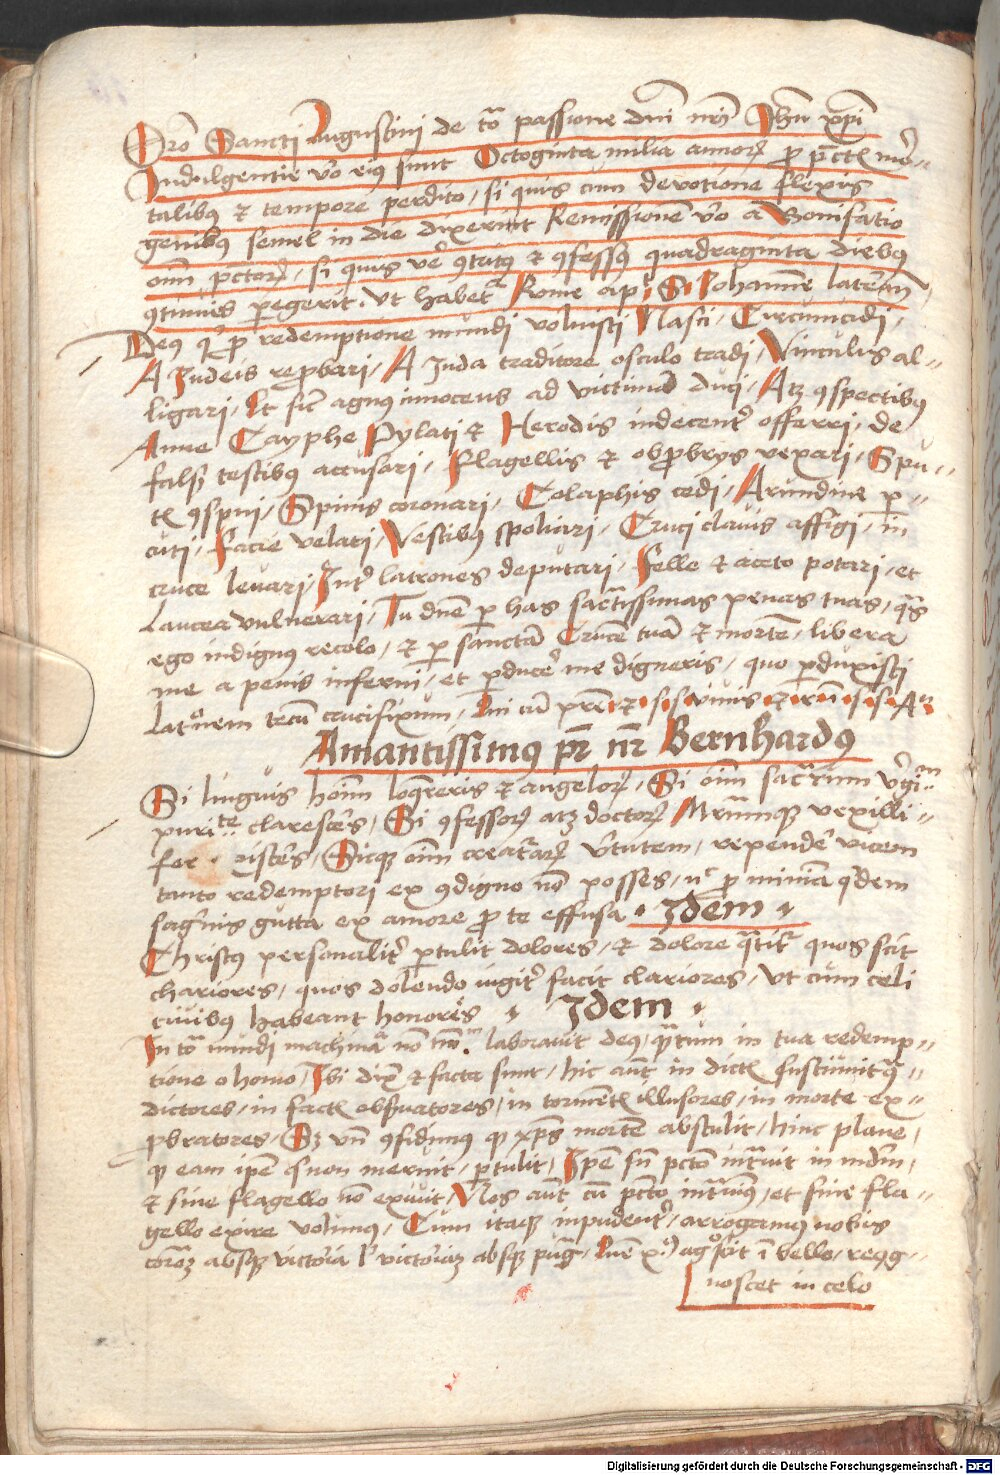 Oro Sancti Augustini de to͞ passione dn͞i nr͞i Jhu͞ xp͞i
Indulgentie v͞o ei9 sunt Octoginta milia annoꝝ p pctis mor-
talibꝰ et tempore perdito / si quis cum devotione flexis
genibꝰ semel in die dixerit Remissionem v͞o a Bonifatio
om͞i pctoꝝ / si quis ve͞r 9tritꝰ et 9fessꝰ quadraginta diebꝰ
9tinuis pegerit. Ut habetr Rome apt S. Johannem lateran͞
Deꝰ qͥ p redemptione mundi voluisti Nasci / Circumcidi /
A Judeis rep͞bari / A Juda traditore osculo tradi / Vinculis al-
ligari / Et sic͞ agnꝰ innocens ad victima͞ duci / Atqꝫ 9spectibꝰ
Anne Cayphe Pylati et Herodis indecent͞ offerri / de
falsis testibꝰ accusari / Flagellis et obp͞brys vexari / Spu-
tis 9spui / Spinis coronari / Colaphis cedi / Arundine p-
cuti / Facie velari / Vestibꝰ spoliari / Cruci clavis affigi / in
cruce levari / Int͞ latrones deputari / Felle et aceto potari / et
Lancea vulnerari / Tu dn͞e p has sacr͞tissimas penas tuas / qͣs
ego indignꝰ recolo / et p sancta͞ Cruce͞ tua͞ et morte͞ / libera
me a penis inferni / et pduce͞ me digneris / quo pduxisti
Latronem tecu͞ crucifixum / Qui cu͞ pr͞e et s s vivis et rn͞ s s A͞
Amantissimꝰ pr͞ nr͞ Bernhardꝰ
Si linguis homi͞ loqͣreris et angeloꝝ / Si om͞i sacrarum v͞gim͞
puritͣte claresce͞s / Si 9fessoꝝ atqꝫ doctoꝝ Mr͞umqꝫ vexilli-
fer existe͞s / Sicqꝫ om͞i creaturaꝝ v͞tutem / repende͞ vicem
tanto redemptori ex 9digno no͞ posses / nͨ p minima q͞dem
sag͞inis gutta ex amore p te effusa . Idem .
Christꝰ personalit͞ ptulit dolores / et dolore qͣtit͞ quos scit
chariores / quos dolendo iugit͞ facit clariores / Ut cum celi
civibꝰ habeant honores . Idem .
In to͞ mundi machina͞ no͞ tm͞ laboravit deꝰ / qͣtum in tua redemp-
tione o homo / Ibi dix͞ et facta sunt / hic au͞t in dictis sustinuit 9tͣ-
dictores / in factis obs͞vatores / in torme͞tis illusores / in morte ex-
pbratores / Sꝫ un͞ 9fidimꝰ qꝫ xps͞ morte͞ abstulit / hinc plane /
qꝫ eam ipe͞ qͥ non meruit / ptulit / Ipe͞ sn͞ pcto͞ intͣvit in mdm͞ /
et sine flagello no͞ exivit / Nos au͞t cu͞ pcto͞ intͣmꝰ / et sine fla-
gello exire volumꝰ / Cum itaqꝫ inpudent͞ / arrogamꝰ nobis
corona͞ absqꝫ victoria l͞ victoria͞ absqꝫ pug͞ / Que͞ x͞ ag͞oscit i͞ bello / recog-
noscet in celo
Digitalisierung gefördert durch die Deutsche Forschungsgemeinschaft - DFG